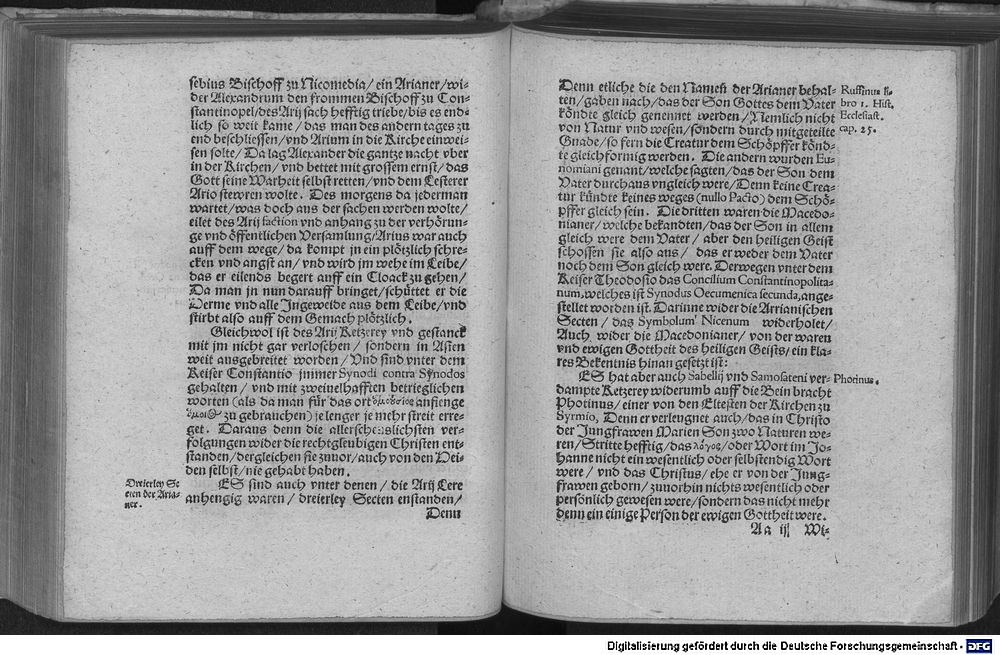 sebius Bischoff zu Nicomedia/ ein Arianer/wi-
der Alexandrum den frommen Bischoff zu Con-
stantinopel/des Arij sach hefftig triebe/bis es end-
lich so weit kame/das man des andern tages zu
end beschliessen/vnd Arium in die Kirche einwei-
sen solte/Da lag Alexander die gantze nacht vber
in der Kirchen/vnd bettet mit grossem ernst/das
Gott seine Warheit selbst retten/vnd dem Lesterer
Ario stewren wolte. Des morgens da jederman
wartet/was doch aus der sachen werden wolte/
eilet des Arij faction vnd anhang zu der verhörun-
ge vnd öffentlichen Versamlung/Arius war auch
auff dem wege/da kompt jn ein plötzlich schre-
cken vnd angst an/vnd wird jm wehe im Leibe/
das er eilends begert auff ein Cloack zu gehen/
Da man jn nun darauff bringet/schüttet er die
Derme vnd alle Jngeweide aus dem Leibe/vnd
stirbt also auff dem Gemach plötzlich.
Gleichwol ist des Arij Ketzerey vnd gestanck
mit jm nicht gar verloschen/ sondern in Asien
weit ausgebreitet worden/Vnd sind vnter dem
Keiser Constantio jmmer Synodi contra Synodos
gehalten/ vnd mit zweiuelhafften betrieglichen
worten (als da man für das ort ὁμοούσιος anfienge
zu gebrauchen) je lenger je mehr streit erre-
get. Daraus denn die allerscheuslichsten ver-
folgungen wider die rechtgleubigen Christen ent-
standen/dergleichen sie zuuor/auch von den Hei-
den selbst/nie gehabt haben.
Dreierley Se
cten der Aria-
ner.
ES sind auch vnter denen/ die Arij Lere
anhengig waren/ dreierley Secten enstanden/
Denn
Denn etliche die den Namen der Arianer behal-
ten/gaben nach/das der Son Gottes dem Vater
köndte gleich genennet werden/Nemlich nicht
von Natur vnd wesen/sondern durch mitgeteilte
Gnade/so fern die Creatur dem Schöpffer könd-
te gleichformig werden. Die andern wurden Eu-
nomiani genant/welche sagten/das der Son dem
Vater durchaus vngleich were/Denn keine Crea-
tur kündte keines weges (nullo Pacto) dem Schö-
pffer gleich sein. Die dritten waren die Macedo-
nianer/welche bekandten/das der Son in allem
gleich were dem Vater/ aber den heiligen Geist
schossen sie also aus/ das er weder dem Vater
noch dem Son gleich were. Derwegen vnter dem
Keiser Theodosio das Concilium Constantinopolita-
num, welches ist Synodus Oecumenica secunda, ange-
stellet worden ist. Darinne wider die Arrianischen
Secten/ das Symbolum Nicenum widerholet/
Auch wider die Macedonianer/ von der waren
vnd ewigen Gottheit des heiligen Geists/ein kla-
res Bekentnis hinan gesetzt ist:
ES hat aber auch Sabellij vnd Samosateni ver-
dampte Ketzerey widerumb auff die Bein bracht
Photinus/einer von den Eltesten der Kirchen zu
Syrmio, Denn er verleugnet auch/das in Christo
der Jungfrawen Marien Son zwo Naturen we-
ren/Stritte hefftig/das λόγος/oder Wort im Jo-
hanne nicht ein wesentlich oder selbstendig Wort
were/ vnd das Christus/ehe er von der Jung-
frawen geborn/zuuorhin nichts wesentlich oder
persönlich gewesen were/sondern das nicht mehr
denn ein einige Person der ewigen Gottheit were.
Aa iij Wi-
Ruffinus li-
bro 1. Hist.
Ecclesiast.
cap. 25.
Phorinus.
Digitalisierung gefördert durch die Deutsche Forschungsgemeinschaft - DFG